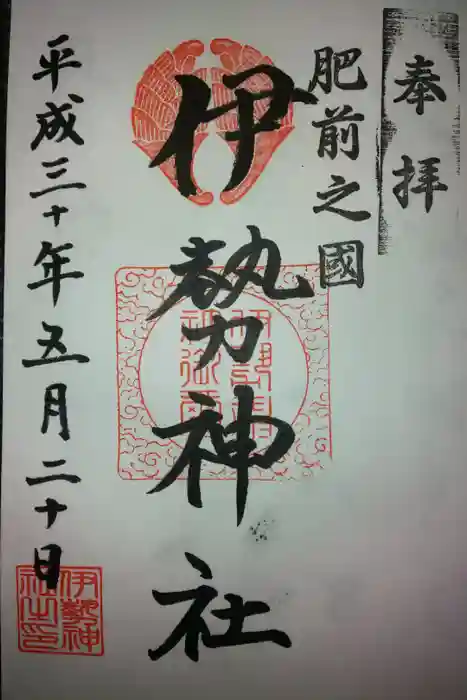 奉拝
肥前之國
伊勢神社
平成三十年五月二十日
伊勢神
社之印